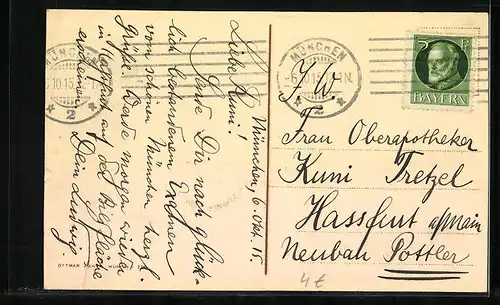 München, 6. Okt. 15.
Liebe Kuni!
Sende Dir nach glück-
lich bestandenem Examen
vom schönen München herzl.
Grüße. Werde morgen wieder
in auf der Bildfläche
erscheinen.
Dein Ludwig.
MÜNCHEN
10.15
* 2 *
MÜNCHEN
6.10.15
* 2 *
5 PF
BAYERN
I. W.
Frau Oberapotheker
Kuni Tretzel
Hassfurt a/Main
Neubau Pottler
4 €
OTTMAR